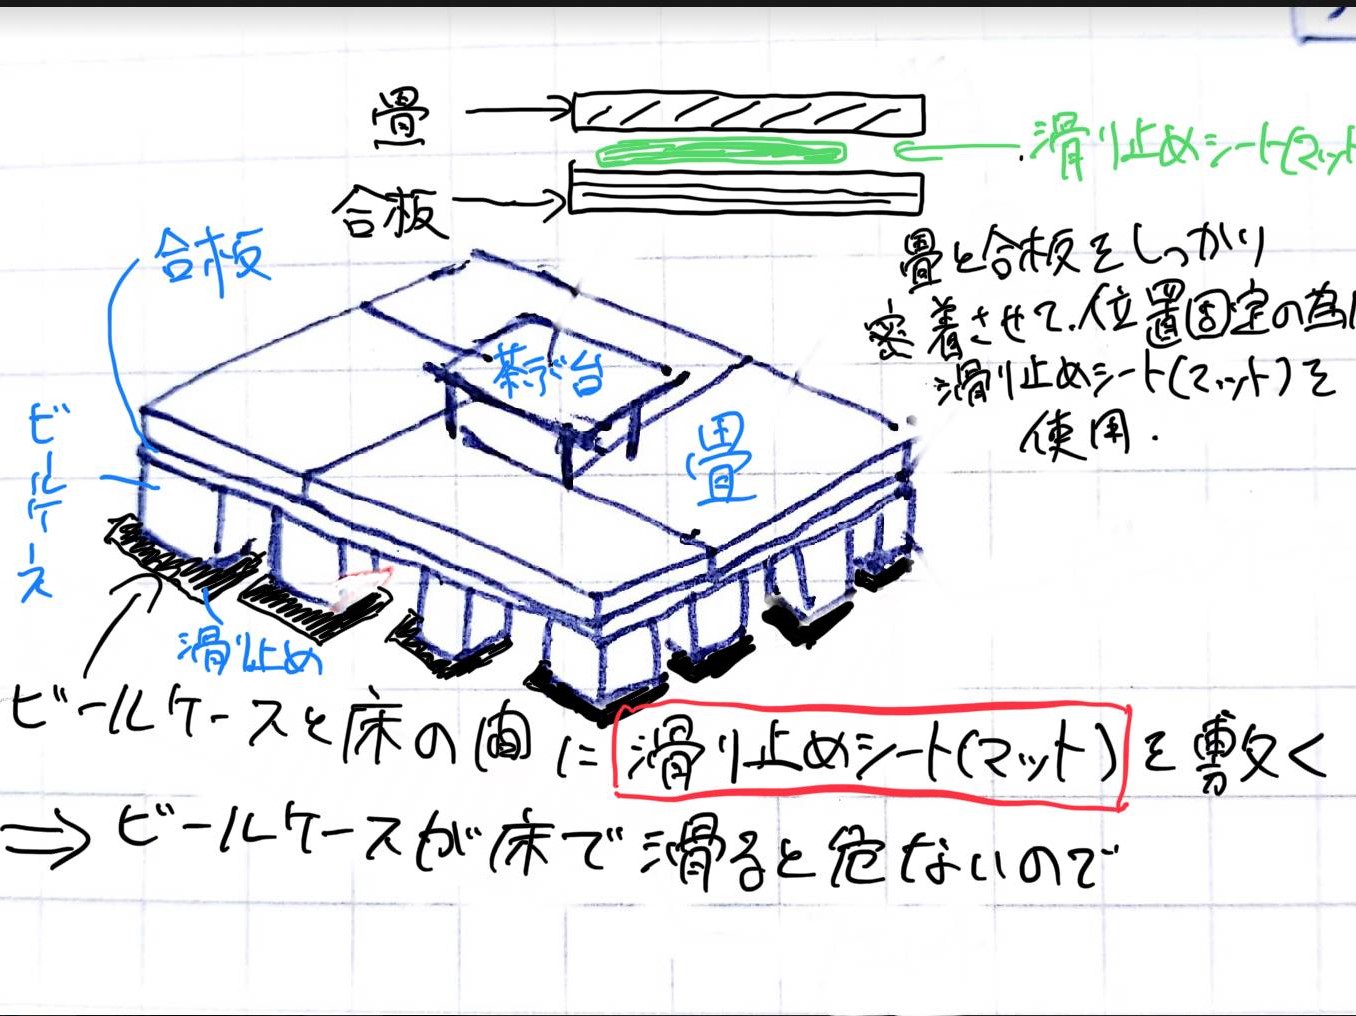 畳
滑り止めシート(マット
合板
合板
畳と合板をしっかり
密着させて、位置固定の為に
滑り止めシート(マット)を
使用.
茶ぶ台
畳
ビールケース
滑り止め
ビールケースと床の間に滑り止めシート(マット)を敷く
⇒ビールケースが床で滑ると危ないので